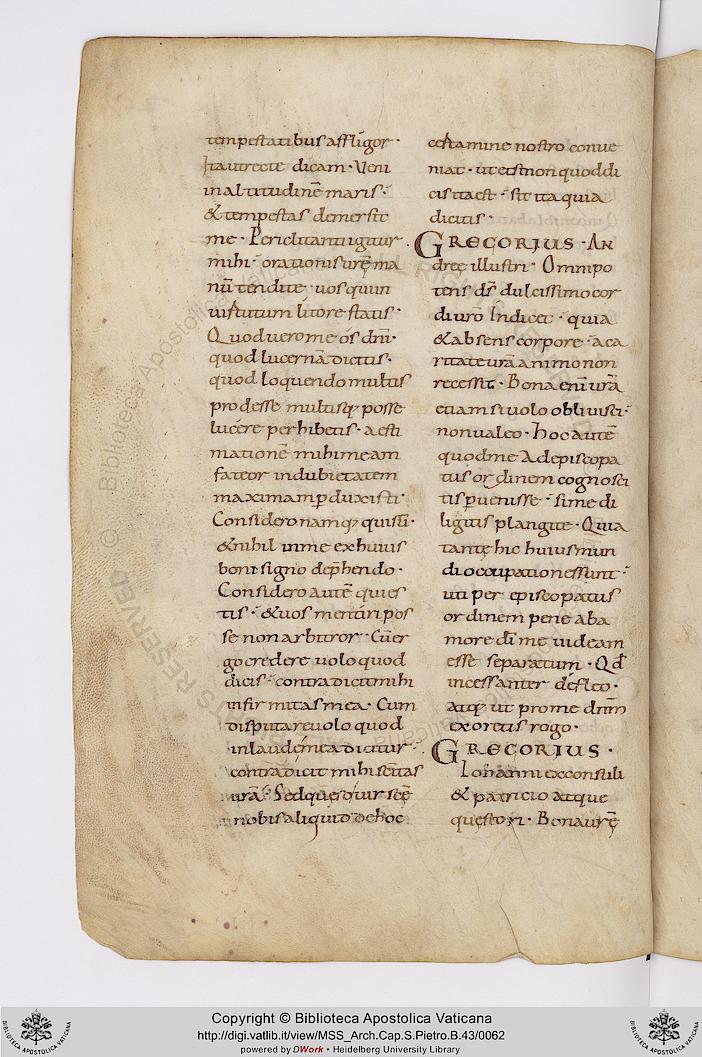 tempestatibus affligor·
Ita ut recte dicam· Veni
in altitudinē maris·
& tempestas demersit
me· Periclitanti igitur
mihi· orationis urę̄ ma
nū tendite· uos qui in
uirtutum litore statis·
Quod uero me ós dn̄i·
quod lucernā dicitis·
quod loquendo multis
prodesse multisq; posse
lucere perhibetis· aesti
mationē mihi meam
fateor in dubietatem
maximam pduxistis·
Considero namq; qui sū·
& nihil in me ex huius
boni signo dephendo·
Considero autē qui es
tis· & uos mentiri pos
se non arbitror· Cū er
go credere uolo quod
dicis· contradicit mihi
infirmitas mea· Cum
disputare uolo quod
in laudé mea dicitur·
contradicit mihi scītas
urā· Sed quęso uir scē
nobis aliquid de hoc
certamine nostro conue
niat· ut etsi non quod di
citis ita est· sit ita quia
dicitis·
GREGORIUS· AN
dreę illustri· Omnipo
tens ds̄ dulcissimo cor
di urō Indicet· quia
& absens corpore· a ca
ritate urā animo non
recessit· Bona eni urā
etiam si uolo obliuisci·
non ualeo· Hoc autē
quod me Ad episcopa
tus ordinem cognosci
tis puenisse· si me di
ligitis plangite· Quia
tantę hic huius mun
di occupationes sunt·
uti per episcopatus
ordinem pene ab a
more dī me uideam
esse separatum· Qd
incessanter défleo·
atq; ut pro me dnm̄
exoretis rogo·
GREGORIUS·
Iohanni exconsuli
& patricio atque
questori· Bona urę̄
Copyright © Biblioteca Apostolica Vaticana
http://digi.vatlib.it/view/MSS_Arch.Cap.S.Pietro.B.43/0062
powered by DWork • Heidelberg University Library